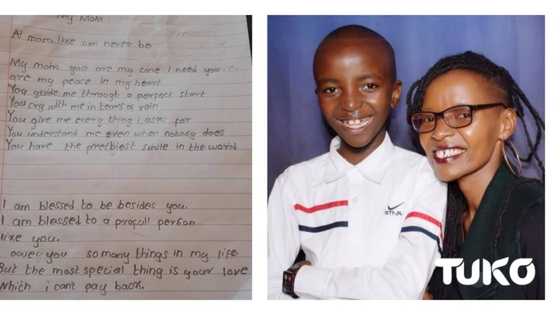 My Mom
A mom like can never be
My mom you are my one I need you
are my peace in my heart
You guide me through a perfect start
You cry with me in tears or rain
You give me every thing I ask for
You understand me even when nobody does
You have the prettiest smile in the world
I am blessed to be besides you
I am blessed to a person
like you.
you so many things in my life
But the most special thing is your love
Which i cant pay back.
TUKO